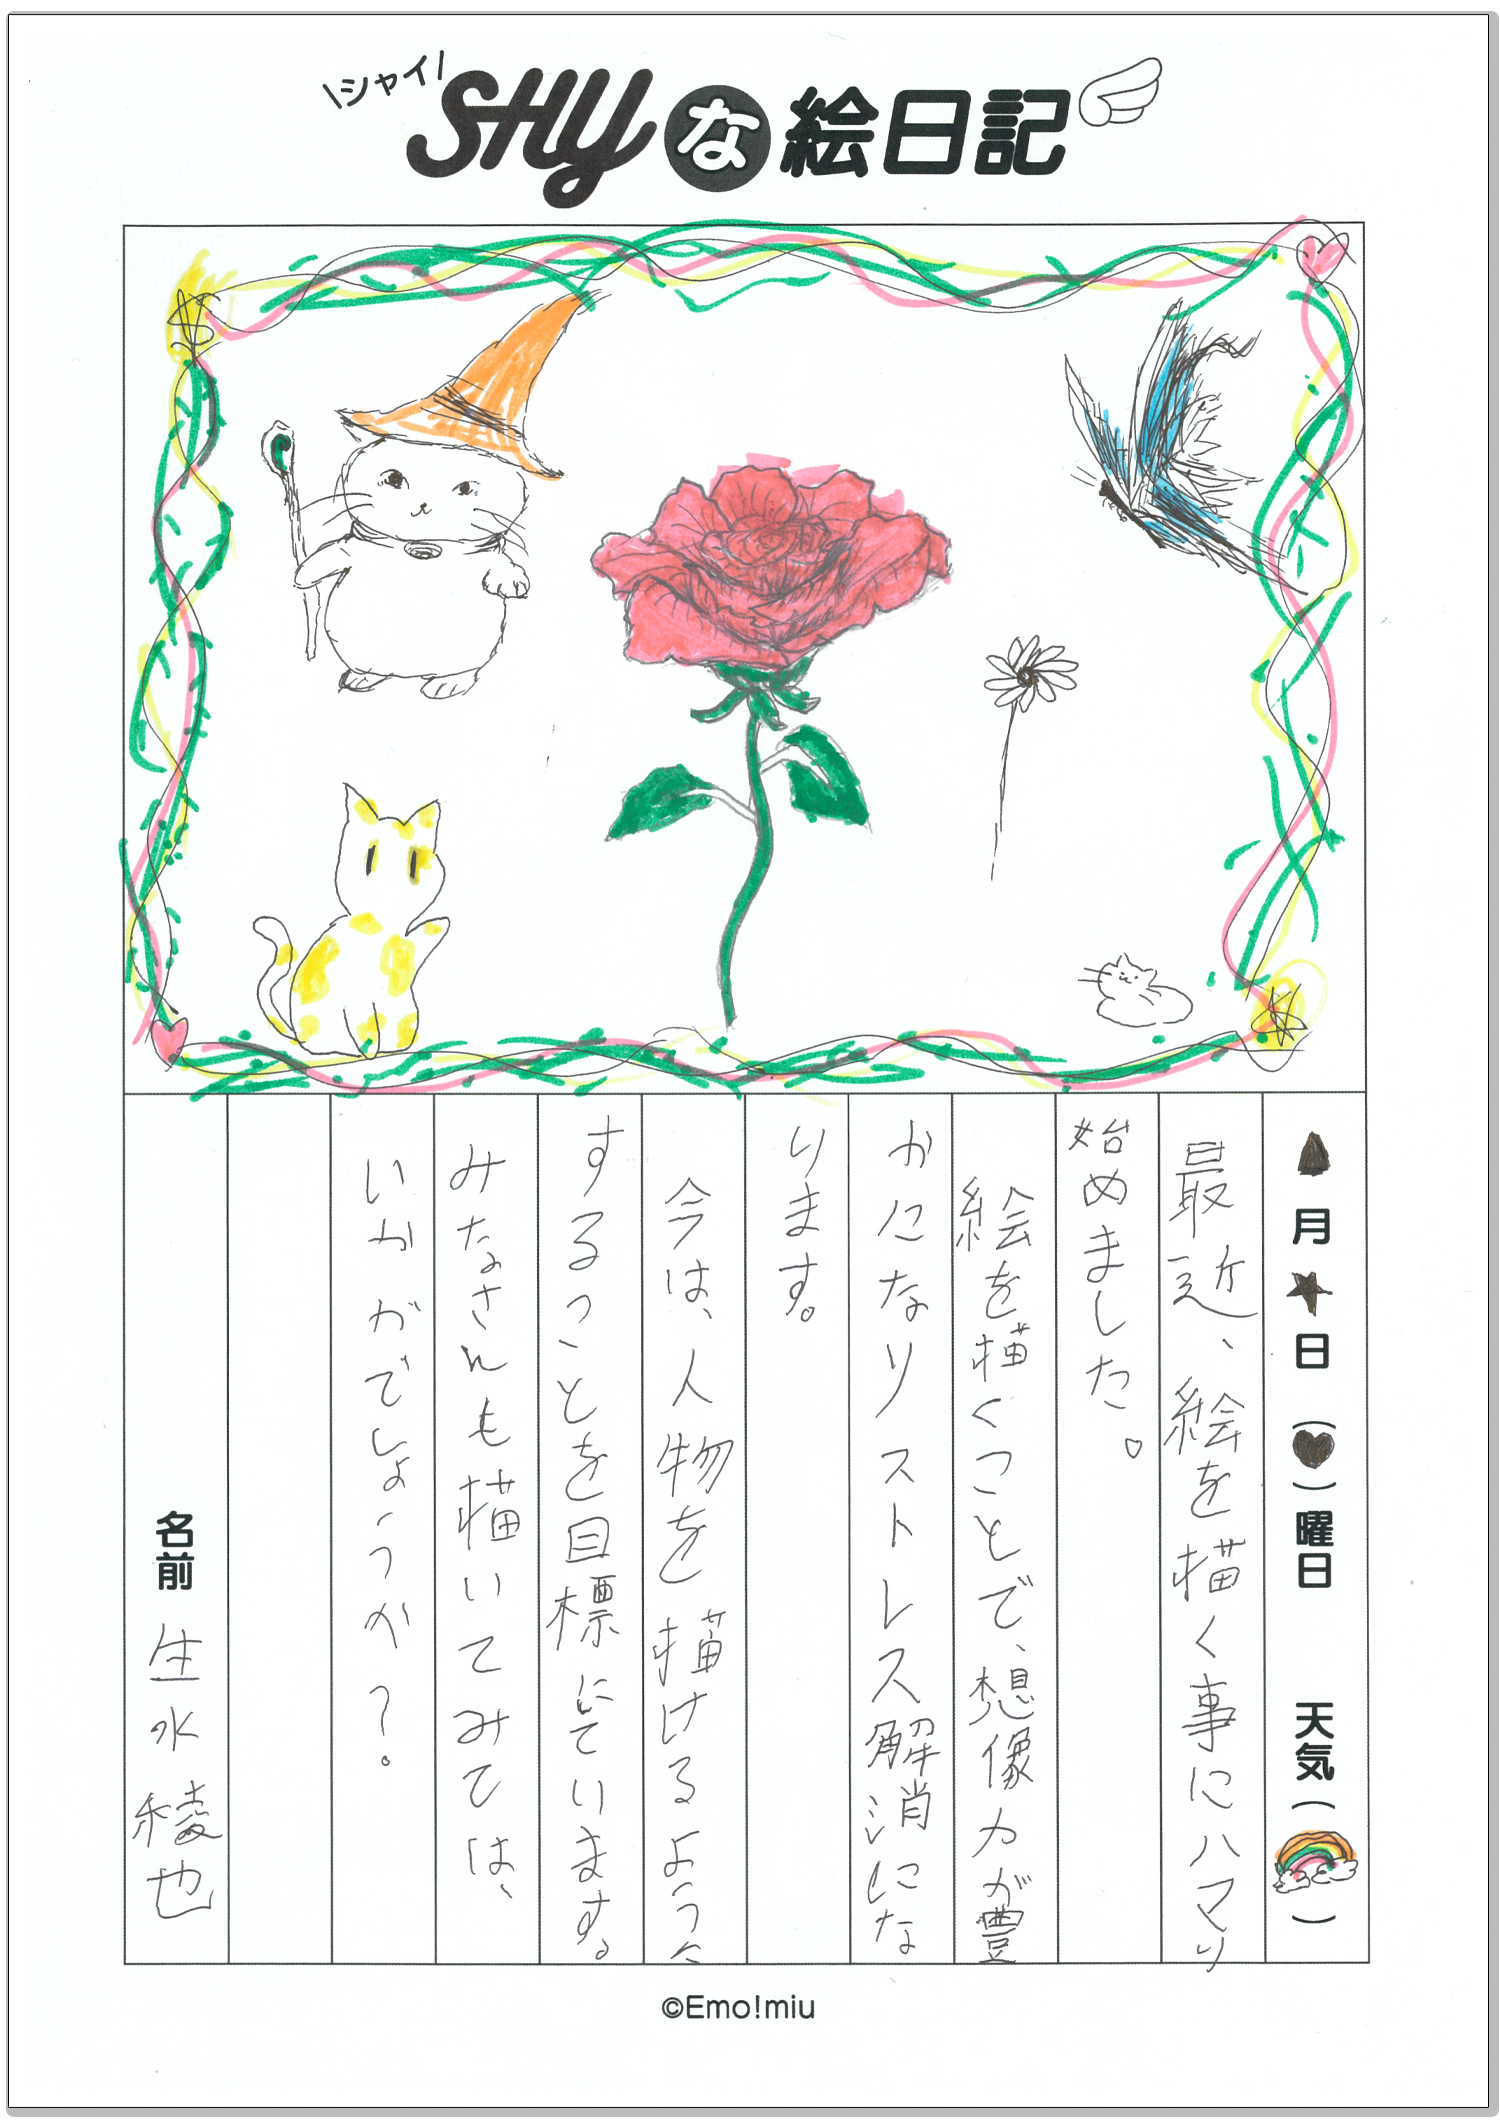 \シャイ/
SHyな絵日記
月 日 ( )曜日 天気( )
最近、絵を描く事にハマり
始めました。
絵を描くことで、想像力が豊
かになりストレス解消にな
ります。
今は、人物を描けるように
することを目標にています。
みなさんも描いてみては、
いかがでしょうか?。
名前 生水 綾也
©Emo!miu